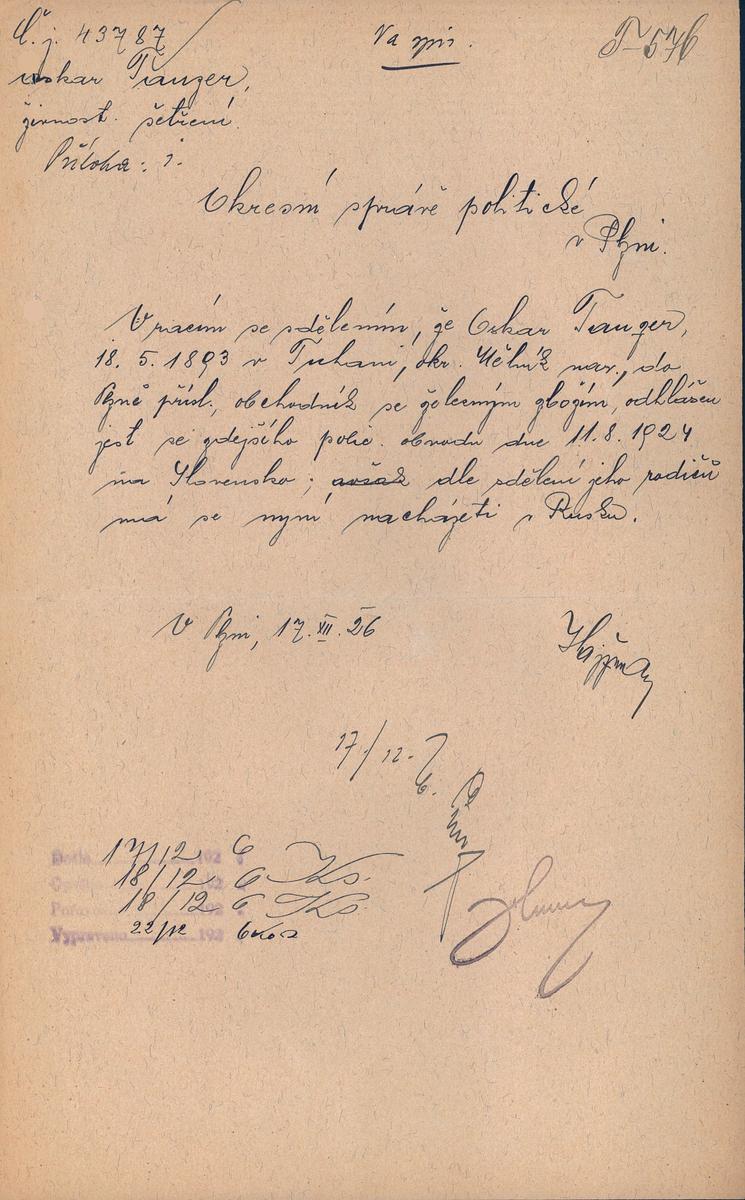 Č. j. 43787
Na spis.
T-576
Oskar Taußer,
živnost. šetření.
Příloha: 1.
Okresní správě politické
v Plzni.
Vracím se sdělením, že Oskar
18. 5. 1893 v Tuhani, okr. Mělník nar., do
Plzně přísl., obchodník se železným zbožím, odhlášen
jest ze zdejšího polic. obvodu dne 11.8.1924
na Slovensko; avšak dle sdělení jeho rodičů
má se nyní nacházeti v Rusku.
V Plzni, 17.XII.26
17/12. 6.
Došlo 17/12 192 6
18/12 192 6 Ks.
18/12 192 6 Ks.
Vypraveno 22/12 192 6